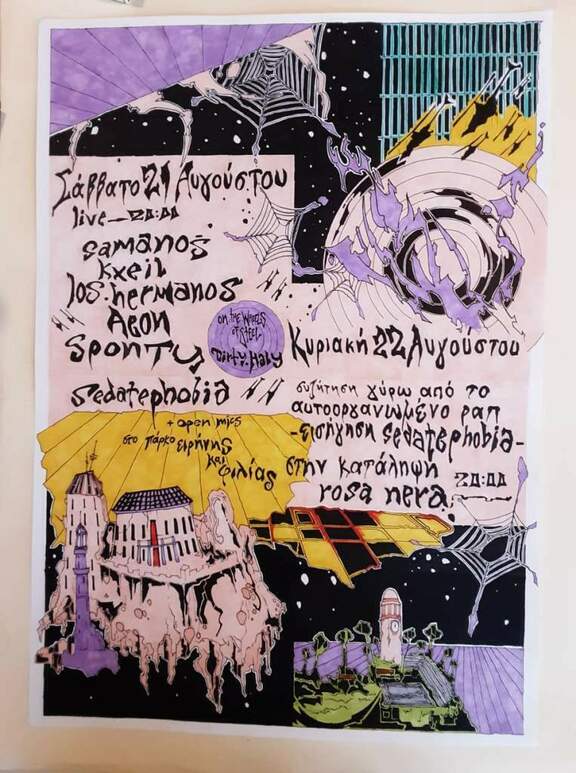 Σάββατο 21 Αυγούστου
live - 20:00
samanos
kxeil
los hermanos
Aeon
sponty
sedatephobia
on the wheels
of steel
Dirty Haly
+ open mics
στο πάρκο ειρήνης
και φιλίας
Κυριακή 22 Αυγούστου
συζήτηση γύρω από το
αυτοοργανωμένο ραπ
-εισήγηση sedatephobia-
στην κατάληψη
rosa nera, 20:00